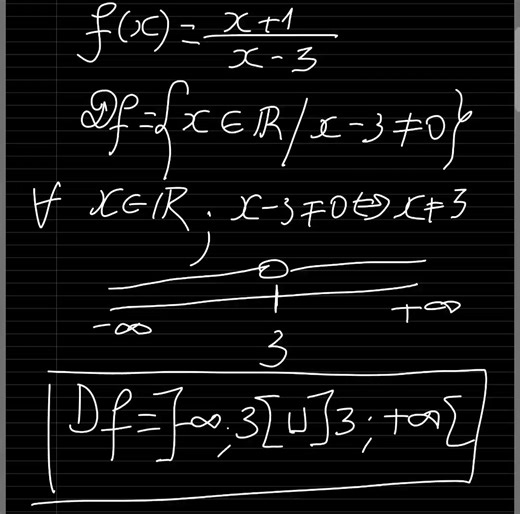 f(x) = x+1 / x-3
Df = {x ∈ ℝ / x-3 ≠ 0}
∀ x ∈ ℝ ; x-3 ≠ 0 ⇔ x ≠ 3
-∞ 3 +∞
Df = ]-∞ ; 3[ ∪ ]3 ; +∞[